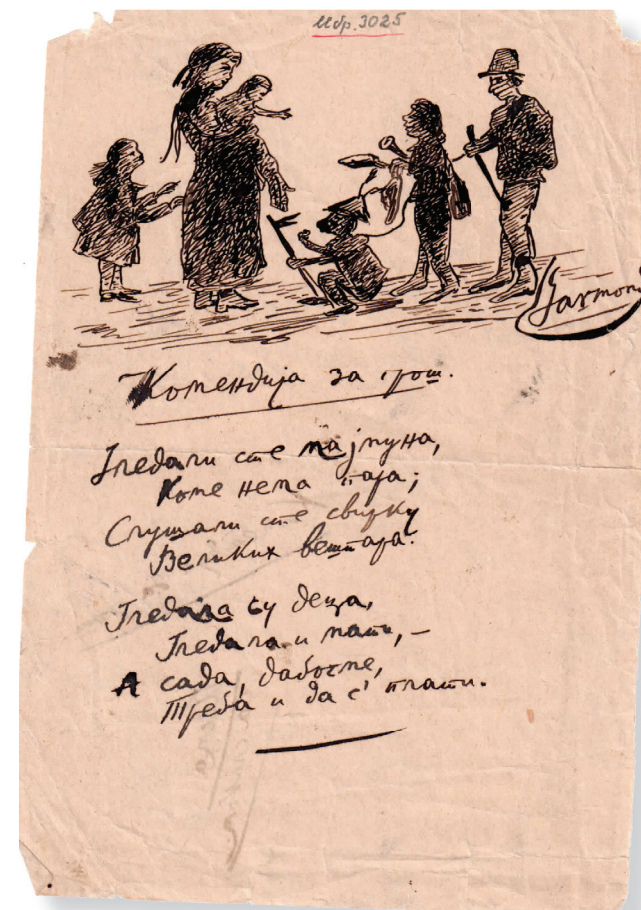 Ибр. 3025
Комендија за грош.
Гледали сте мајмуна,
Коме нема пара;
Слушали сте свирку
Великих вештара.
Гледала су деца,
Гледала и мати, –
А сада, дабогме,
Треба и да с' плати.